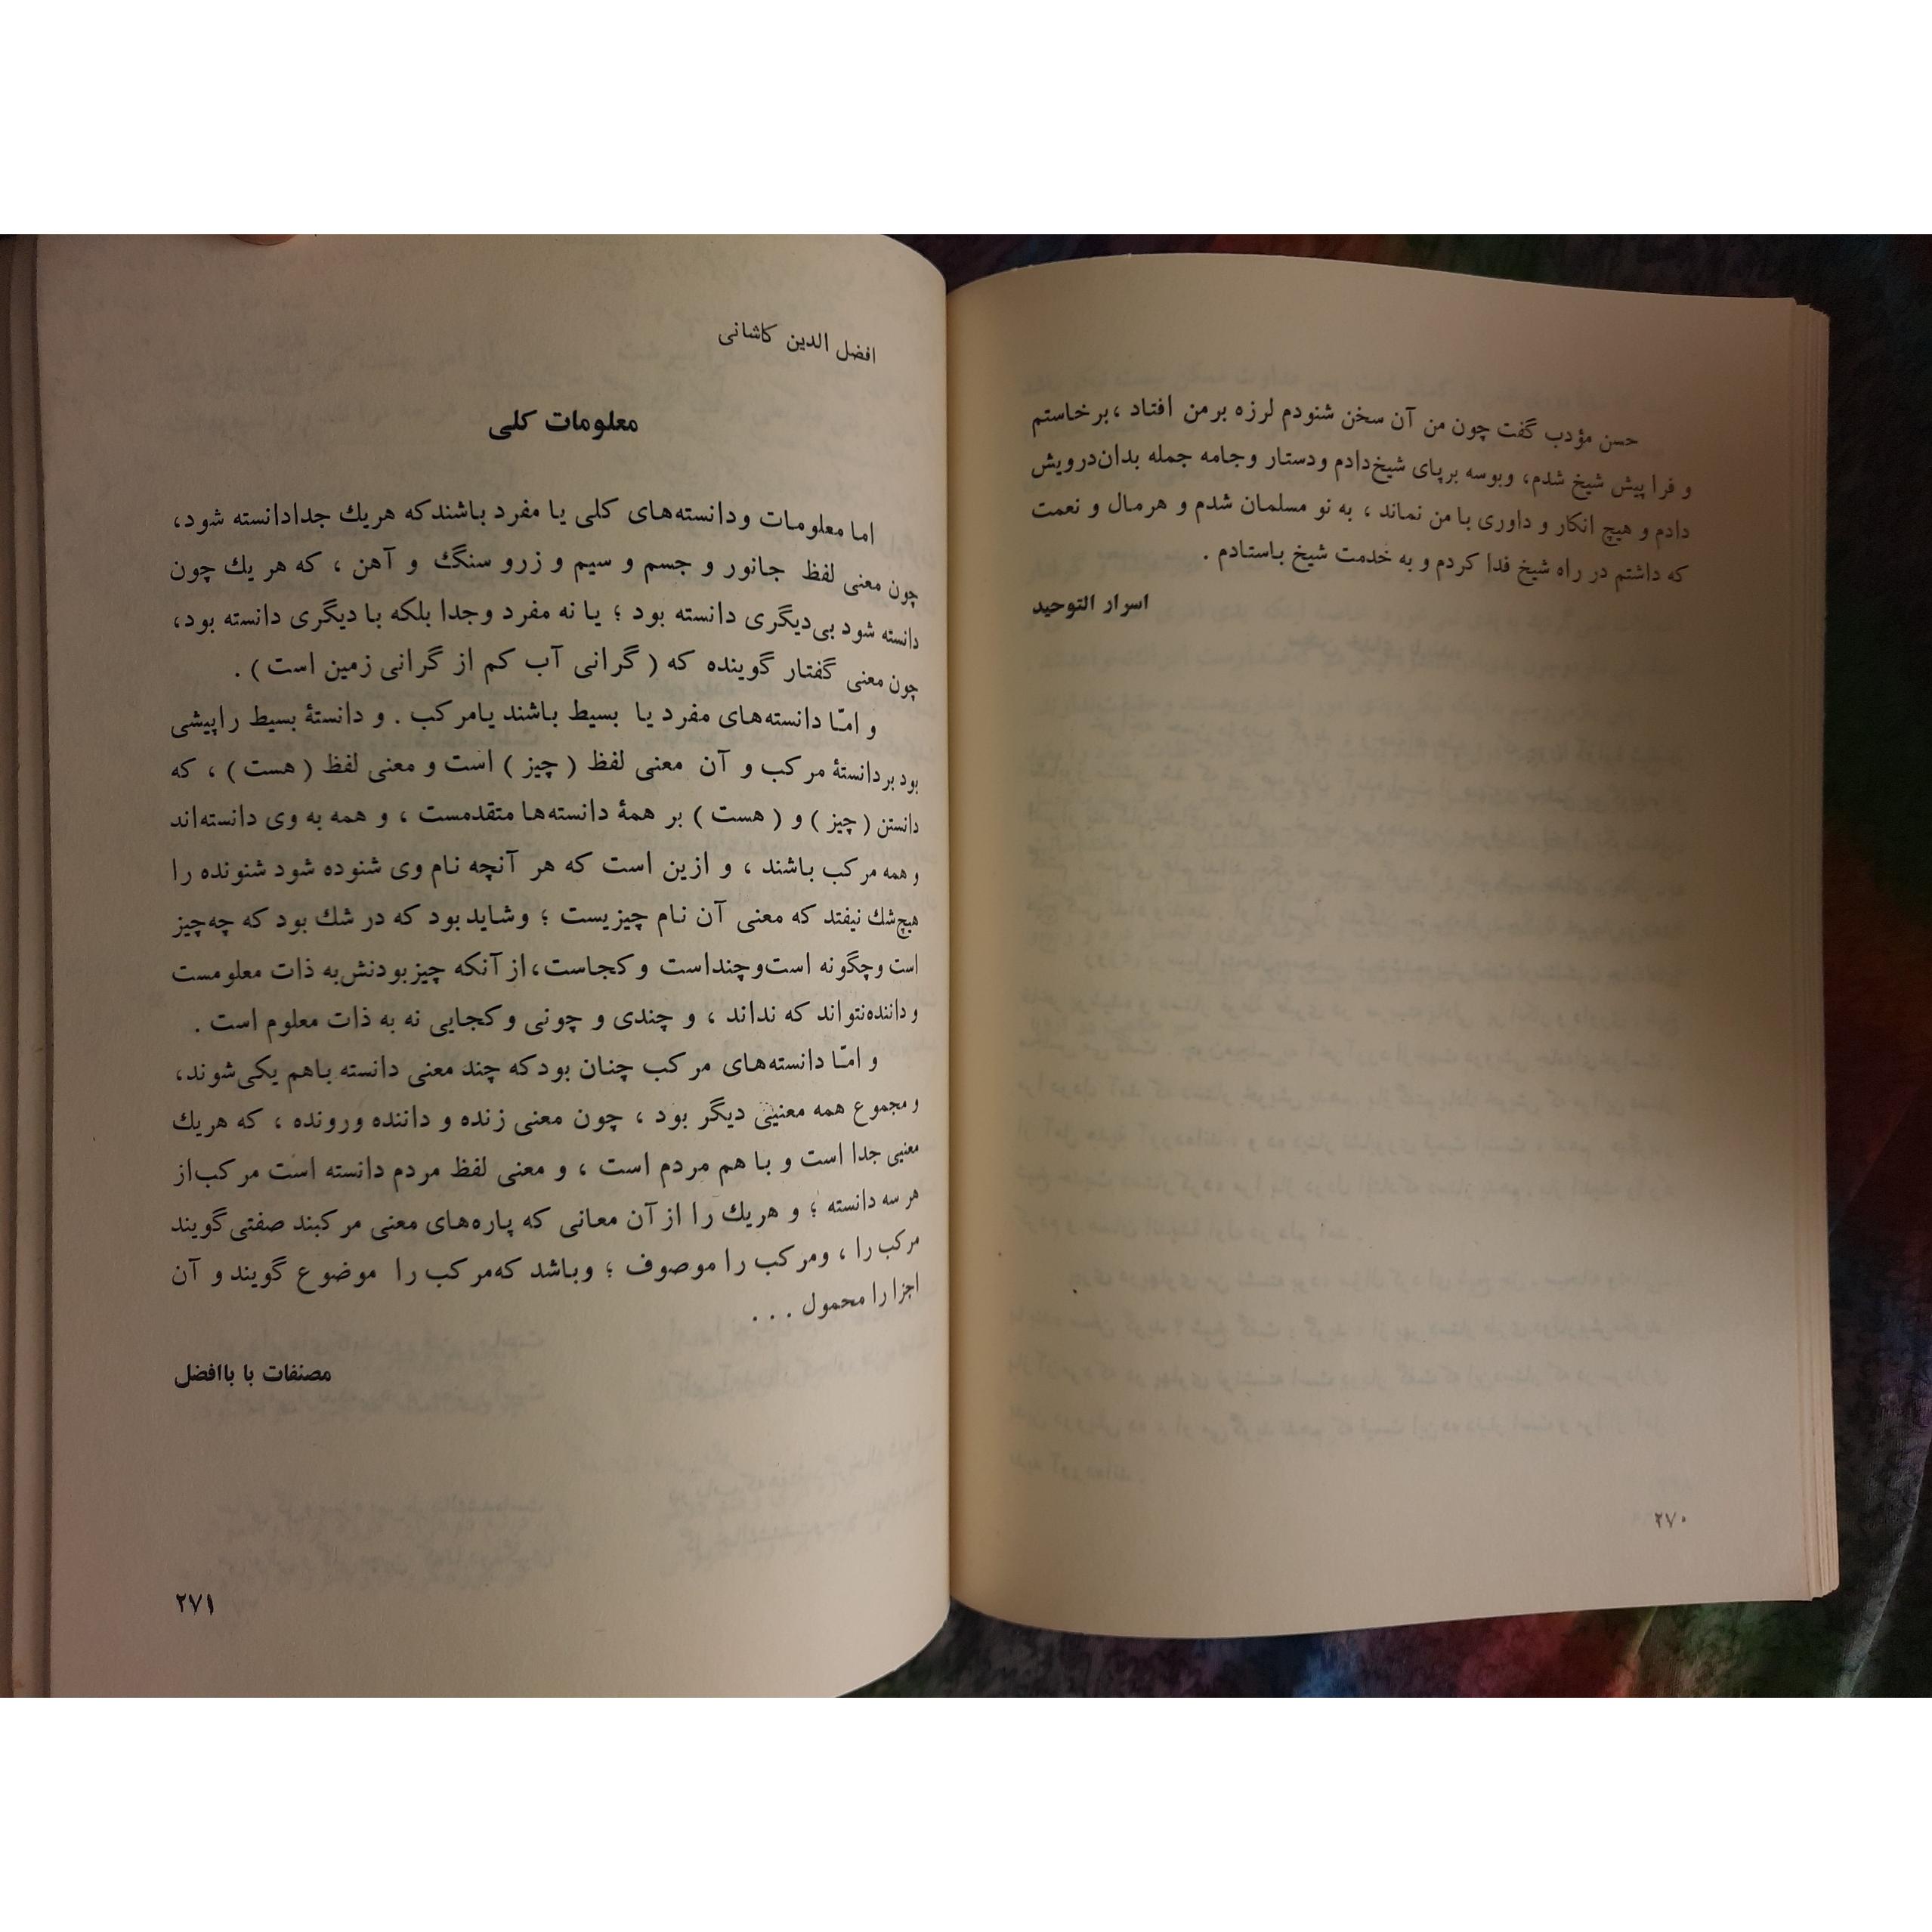 حسن مؤدب گفت چون من آن سخن شنودم لرزه برمن افتاد ، برخاستم
و فرا پیش شیخ شدم، وبوسه برپای شیخ‌دادم ودستار وجامه جمله بدان‌درویش
دادم و هیچ انکار و داوری بامن نماند ، به نو مسلمان شدم و هرمال و نعمت
که داشتم در راه شیخ فدا کردم و به خدمت شیخ باستادم .
اسرار التوحید
۲۷۰
افضل الدین کاشانی
معلومات کلی
اما معلومات ودانسته‌های کلی یا مفرد باشندکه هریك جدادانسته شود،
چون معنی لفظ جانور و جسم و سیم و زرو سنگ و آهن ، که هر یك چون
دانسته شود بی‌دیگری دانسته بود ؛ یا نه مفرد وجدا بلکه با دیگری دانسته بود،
چون معنی گفتار گوینده که ( گرانی آب کم از گرانی زمین است ) .
و امّا دانسته‌های مفرد یا بسیط باشند یامرکب . و دانستهٔ بسیط راپیشی
بود بردانستهٔ مرکب و آن معنی لفظ ( چیز ) است و معنی لفظ ( هست ) ، که
دانستن ( چیز ) و ( هست ) بر همهٔ دانسته‌ها متقدمست ، و همه به وی دانسته‌اند
و همه مرکب باشند ، و ازین است که هر آنچه نام وی شنوده شود شنونده را
هیچ‌شك نیفتد که معنی آن نام چیزیست ؛ وشاید بود که در شك بود که چه‌چیز
است وچگونه است‌وچنداست وکجاست،از آنکه چیزبودنش‌به ذات معلومست
و داننده‌نتواند که نداند ، و چندی و چونی وکجایی نه به ذات معلوم است .
و امّا دانسته‌های مرکب چنان بودکه چند معنی دانسته باهم یکی‌شوند،
و مجموع همه معنیی دیگر بود ، چون معنی زنده و داننده ورونده ، که هریك
معنیی جدا است و با هم مردم است ، و معنی لفظ مردم دانسته است مرکب‌از
هر سه دانسته ؛ و هریك را ازآن معانی که پاره‌های معنی مرکبند صفتی‌گویند
مرکب را ، ومرکب را موصوف ؛ وباشد که‌مرکب را موضوع گویند و آن
اجزا را محمول . . .
مصنفات با باافضل
۲۷۱